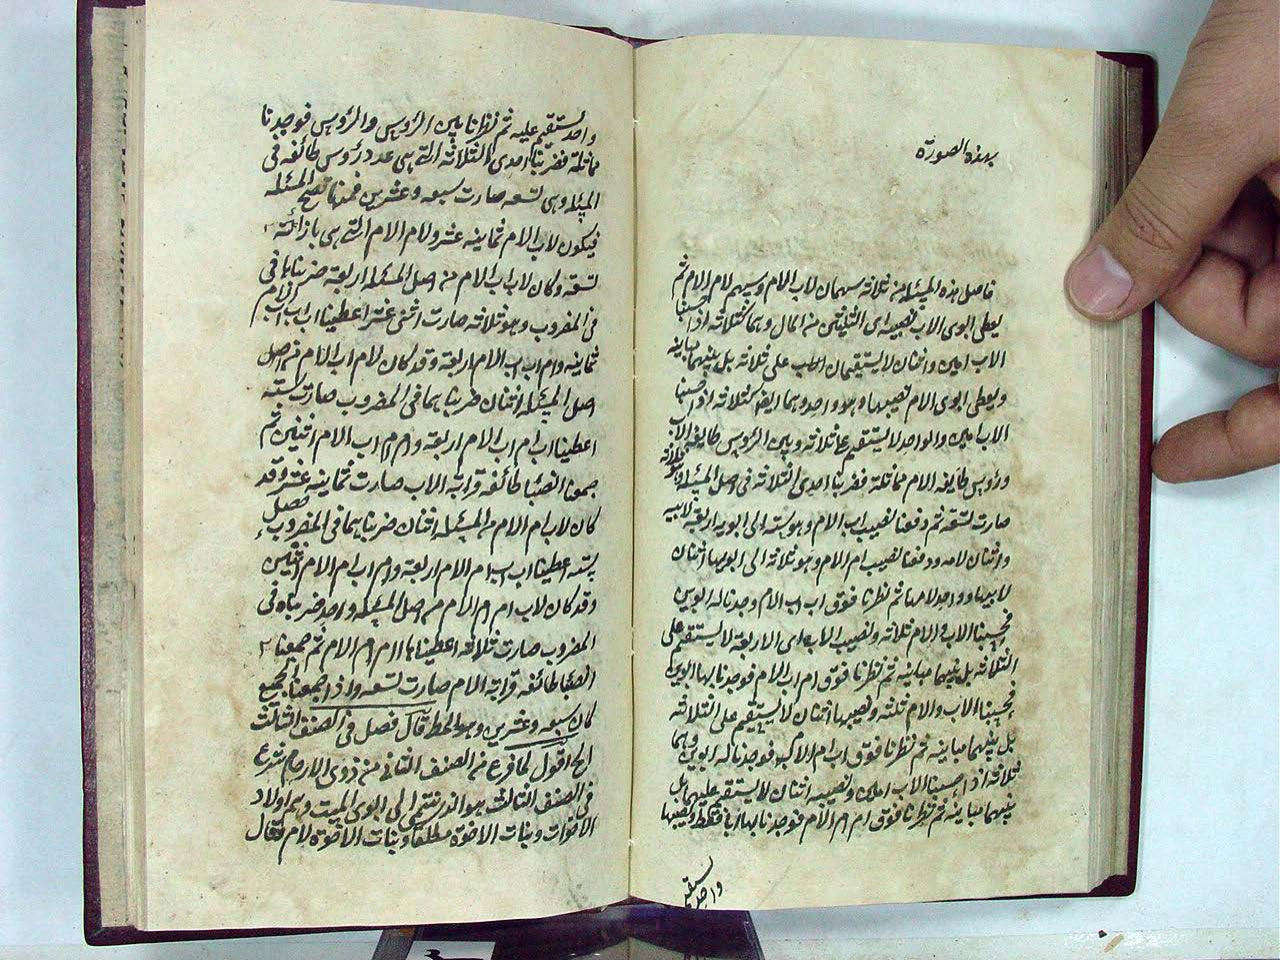 بهذه الصورة
فاصل هذه المسئله من ثلاثة سهمان لاب الام وسهم لام الام ثم
يعطى ابوى الاب نصيبه اى الثلثين من المال وهما كثلاثة اذا حسبنا
الاب امين واثنان لا يستقيمان على ثلاثة بل بينهما مباينه
ويعطى ابوى الام نصيبها وهو واحد وهما ايضا كثلاثة اذا حسبنا
الاب امين والواحد لا يستقيم على ثلاثة وبين الرؤس طايفة الاب
ورؤس طايفه الام مماثلة فضربنا احدى الثلاثة فى اصل المسئله وهو ثلاثة
صارت تسعه ثم دفعنا نصيب اب الام وهو سته الى ابويه اربعة لابيه
واثنان لامه ودفعنا نصيب ام الام وهو ثلاثة الى ابويها اثنان
لابيها وواحد لامها ثم نظرنا فوق اب اب الام وجدنا له ابوين
فحسبنا الاب والام ثلاثة ونصيب الاب اى الاربعة لا يستقيم على
الثلاثه بل بينهما مباينه ثم نظرنا فوق ام اب الام فوجدنا لها ابوين
فحسبنا الاب والام ثلثة ونصيبها اثنان لا يستقيم على الثلاثة
بل بينهما مباينه ثم نظرنا فوق اب ام الام فوجدنا له ابوين وهما
ثلاثة اذا حسبنا الاب امين ونصيبه اثنان لا يستقيم عليهما بل
بينهما مباينه ثم نظرنا فوق ام ام الام فوجدنا لها ابا فقط ونصيبها
واحد يستقيم
واحد يستقيم عليه ثم نظرنا بين الرؤس والرؤس فوجدنا
مماثلة فضربنا احدى الثلاثة التى هى عدد رؤس طائفه فى
المسئله وهى تسعه صارت سبعه وعشرين فمنها تصح المسئله
فيكون لاب الام ثمانيه عشر ولام الام التى هى بازائه
تسعه وكان لاب اب الام من اصل المسئله اربعة ضربناها فى
فى المضروب وهو ثلاثة صارت اثنى عشر اعطينا اب اب اب الام
ثمانيه وام اب اب الام اربعة وقد كان لام اب الام من اصل
اصل المسئله اثنان ضربناهما فى المضروب صارت سته
اعطينا اب ام اب الام اربعة وام ام اب الام اثنين ثم
جمعنا انصبا طائفه قرابة الاب صارت ثمانيه عشر وقد
كان لاب ام الام من المسئله اثنان ضربناهما فى المضروب حصل
سته اعطينا اب اب ام الام اربعة وام اب ام الام اثنين
وقد كان لاب ام ام الام من اصل المسئله واحد ضربناه فى
المضروب صارت ثلاثة اعطيناها ام ام الام ثم جمعنا
انصبا طائفه قرابة الام صارت تسعه واذا جمعنا الجميع
كان سبعه وعشرين وهو المط قال فصل فى الصنف الثالث
الخ اقول لما فرغ من الصنف الثانى من ذوى الارحام شرع
فى الصنف الثالث هو الذى ينتمى الى ابوى الميت وهم اولاد
الاخوات وبنات الاخوة مطلقا وبنات الاخوة لام فقال